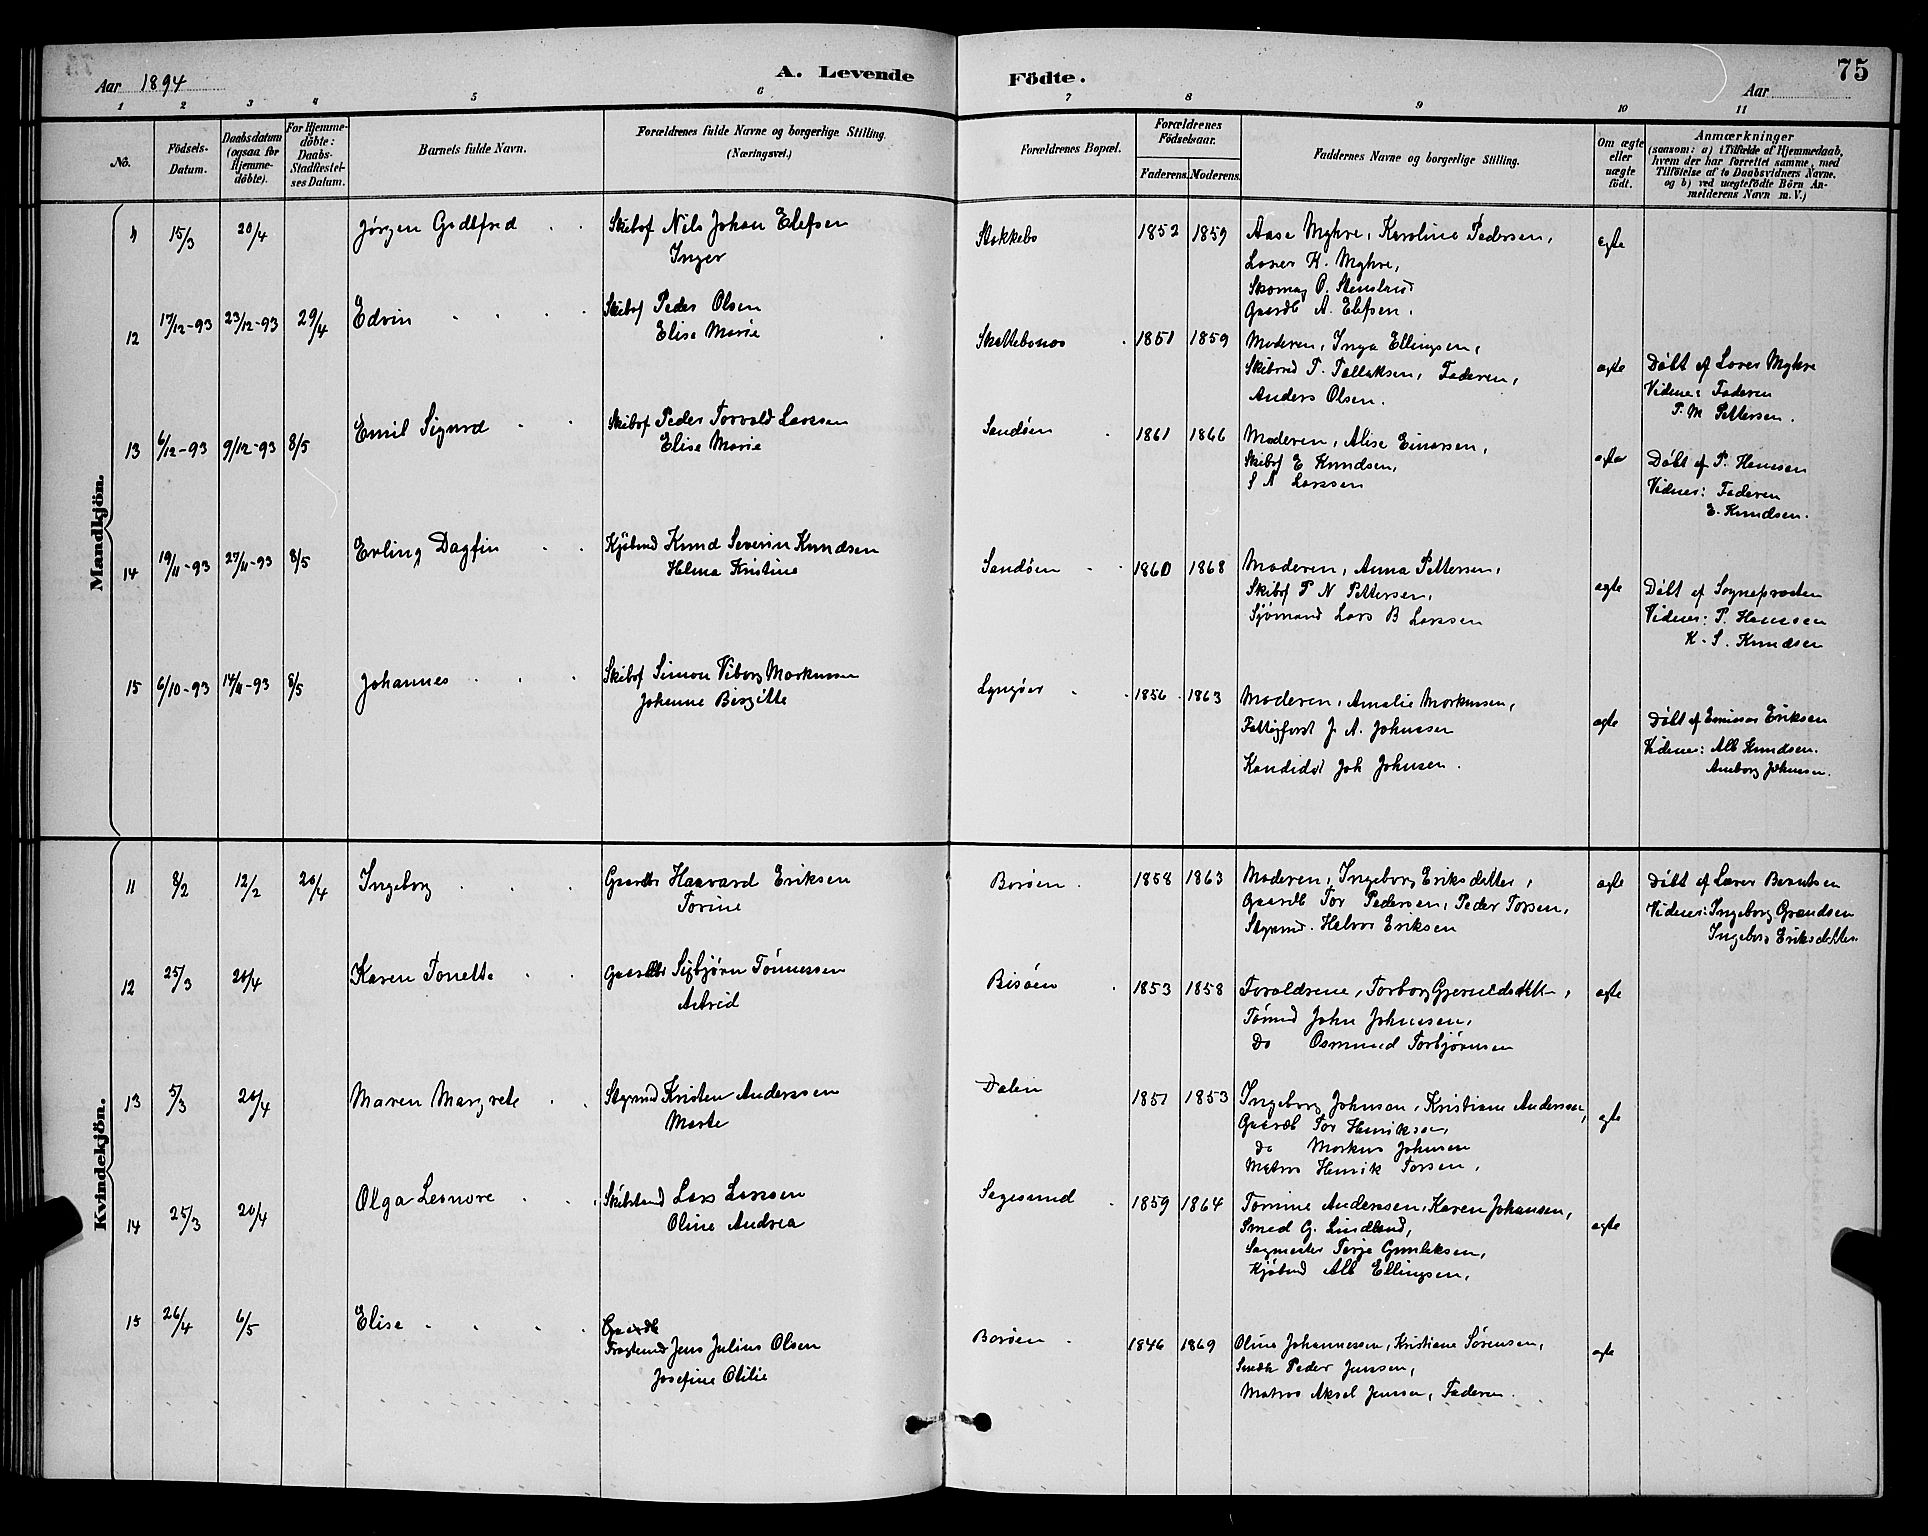 Aar 1894
A. Levende Födte.
Aar
75
1 2 3 4 5 6 7 8 9 10 11
No.
Födsels-Datum.
Daabsdatum (ogsaa for Hjemme-döbte).
For Hjemme-döbte: Daabs-Stadfæstel-ses Datum.
Barnets fulde Navn.
Forældrenes fulde Navne og borgerlige Stilling. (Næringsvei.)
Forældrenes Bopæl.
Forældrenes Födselsaar.
Faderens. Moderens.
Faddernes Navne og borgerlige Stilling.
Om ægte eller uægte födt.
Anmærkninger
(saasom: a) i Tilfælde af Hjemmedaab, hvem der har forrettet samme, med Tilföielse af to Daabsvidners Navne, og b) ved uægtefödte Börn An-melderens Navn m. V.)
Mandkjön.
11 15/3 20/4 Jørgen Godtfred Skibsf Nils Johan Elefsen
Inger
Stokkebo 1852 1859 Aase Myhre, Karoline Pedersen,
Lærer K. Myhre,
Skomag O. Stensrud
Gaardb A. Elefsen.
egte
12 17/12-93 23/12-93 29/4 Edvin Skibsf Peder Olsen
Elise Marie
1851 1859 Moderen, Inga Ellingsen,
T. Tallaksen, Faderen,
Anders Olsen.
ægte Døbt af Lærer Myhre
Vidner: Faderen
P. M. Pettersen.
13 6/12-93 9/12-93 8/5 Emil Sigurd Skibsf Peder Torvald Larssen
Elise Marie
Sandøen 1861 1866 Moderen, Alise Einarsen,
Skibsf E Knudsen,
S N Larssen
ægte Døbt af P. Hanssen
Vidner: Faderen
E. Knudsen.
14 19/11-93 27/11-93 8/5 Erling Dagfin Kjøbmd Knud Severin Knudsen
Helma Kristine
Sandøen 1860 1868 Moderen, Anna Pettersen,
Skibsf P N Pettersen,
Sjømand Lars B Larssen
ægte Døbt af Sogneprosten
Vidner: P. Hanssen
K. S. Knudsen
15 6/10-93 14/11-93 8/5 Johannes Skibsf Simon Viborg Markussen
Johanne Birgitte
Lyngøer 1856 1863 Moderen, Amalie Markussen,
Fattigforst J. A. Johnssen
Kandidat Joh Johnsen.
ægte Døbt af Emissær Eriksen
Vidner: Alb Knudsen.
Anborg Johnsen.
Kvindekjön.
11 8/2 12/2 20/4 Ingeborg Gaardbr Haavard Eriksen
Torine
Borøen. 1858 1863 Moderen, Ingeborg Eriksdatter,
Gaardb Tor Pedersen, Peder Torsen,
Styrmd. Halvor Eriksen
ægte Døbt af Lærer Berntsen
Vidner: Ingeborg Grændsen
Ingeborg Eriksdatter.
12 25/3 20/4 Karen Tonette Gaardbr Sigbjørn Tønnessen
Astrid
1853 1858 Forældrene, Torborg Gjeruldsdatt,
Tømd John Johnssen,
Do Osmund Torbjørnsen
ægte
13 5/3 20/4 Maren Margrete Styrmd Kristen Anderssen
Marte
Dalen 1851 1853 Ingeborg Johnsen, Kristiane Anderssen,
Gaardb Tor Henriksen,
Do Markus Johnsen
Matros Henrik Torsen.
egte
14 25/3 20/4 Olga Leonore Lars Larssen
Oline Andrea
Sagesund 1859 1864 Tomine Anderssen, Karen Johansen,
Smed G. Lindland,
Sagmester Terje Gunleksen,
Kjøbmd Alb Ellingsen.
ægte
15 26/4 6/5 Elise Gaardb
Fragtemd Jens Julius Olsen
Josefine Otilie
Borøen 1846 1869 Oline Johannessen, Kristiane Sørensen,
Peder Jenssen,
Matros Aksel Jenssen, Faderen.
ægte